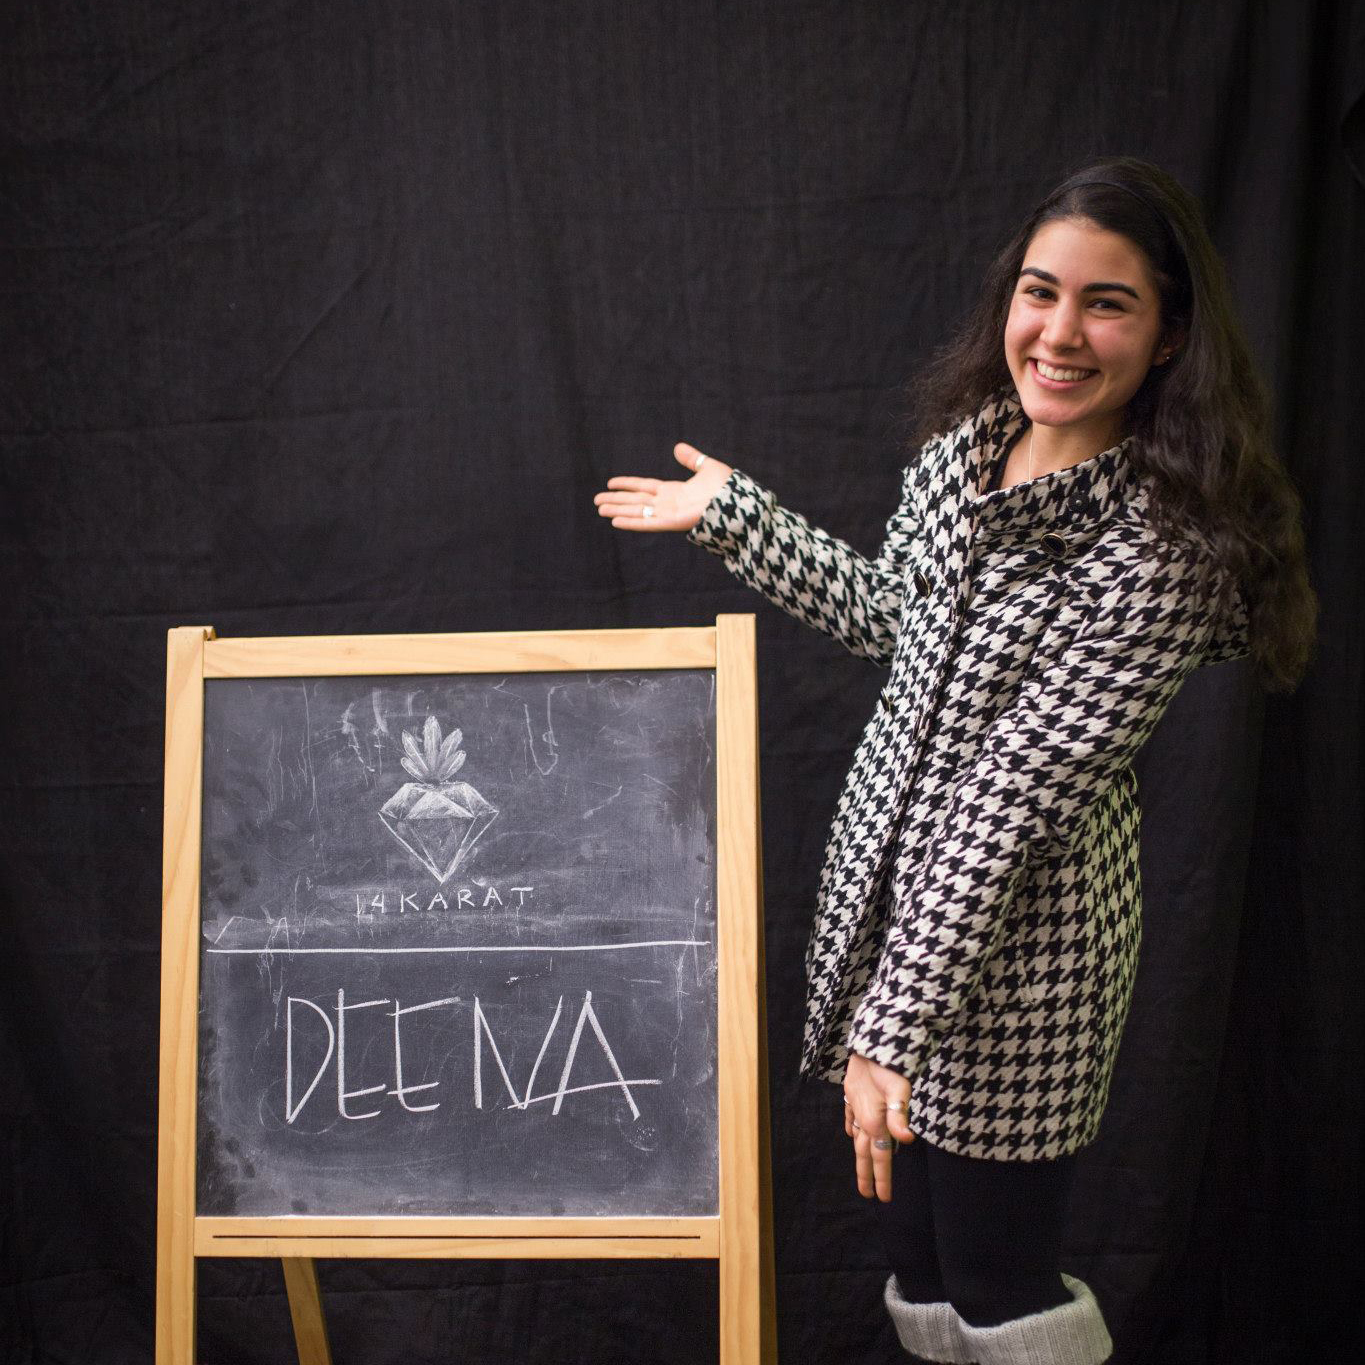 14 KARAT
DEENA